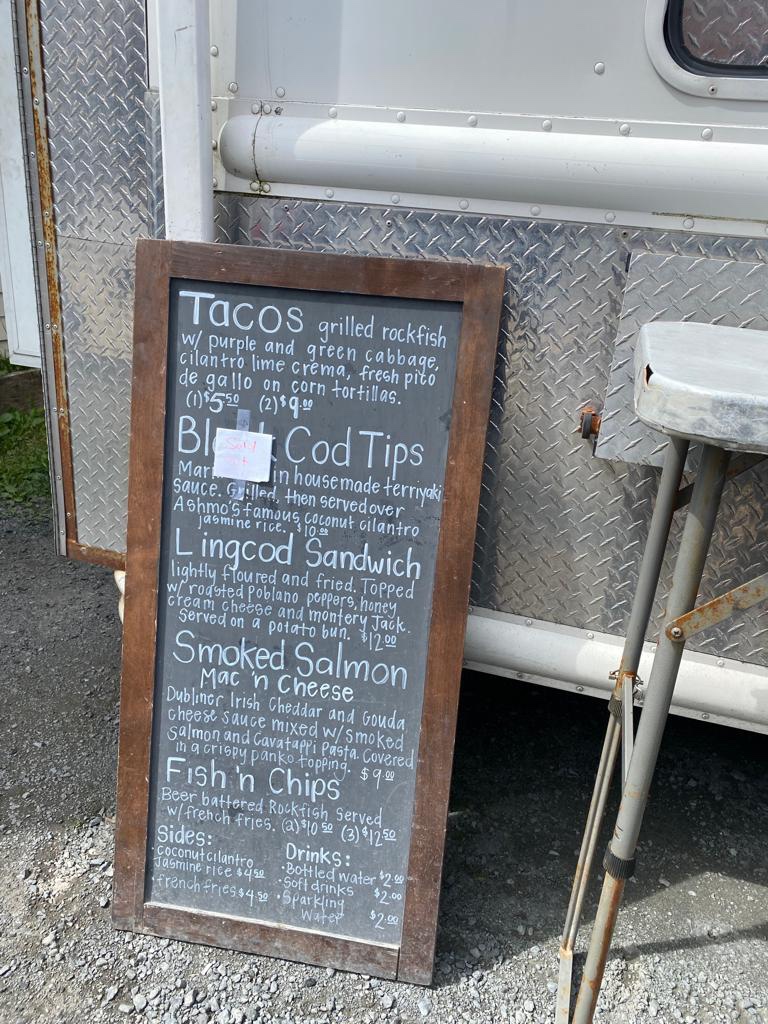 Tacos grilled rockfish
w/ purple and green cabbage,
cilantro lime crema, fresh pico
de gallo on corn tortillas.
(1) $5.50 (2) $9.00
Sold
Cod Tips
in housemade terriyaki
sauce. Grilled, then served over
Ashmo's famous coconut cilantro
jasmine rice. $10.00
Lingcod Sandwich
lightly floured and fried. Topped
w/ roasted poblano peppers, honey
cream cheese and montery Jack.
Served on a potato bun. $12.00
Smoked Salmon
Mac 'n Cheese
Dubliner Irish Cheddar and Gouda
cheese sauce mixed w/ smoked
Salmon and Cavatappi Pasta. Covered
in a crispy panko topping. $9.00
Fish 'n Chips
Beer battered Rockfish Served
w/ french fries. (2) $10.50 (3) $12.50
Sides:
· coconut cilantro
Jasmine rice $4.50
· french fries $4.50
Drinks:
· Bottled water $2.00
· Soft drinks $2.00
· Sparkling
Water $2.00